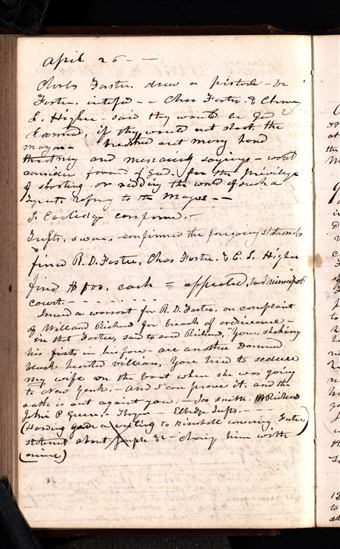 April 26 —
Charles Foster drew a pistol — Dr
Foster interfered — — Chas Foster & Chancy
L. Higbee — said they would be God
damned, if they would not shoot the
mayor — breathed out many hard
threatening and menacing sayings — would
consider favored of God. for the privilege
of shooting or ridding the world of such a
Tyrant refering to the Mayor — —
J. Coolidge confirmed. —
Tufts. swore. confirmed the foregoing statements
fined R. D. Foster, Chas Foster. & C. L. Higbee
fine $100. each = appealed, to municipal
court. —
Issued a warrant for R. D. Foster. on complaint
of Willard Richards for breach of ordinance —
in that Foster, said to said Richards, "You, shaking
his fists in his face. are another Damned
black hearted villain, You tried to seduce
my wife on the boat when she was going
to New York. And I can prove it. and the
oath is out against you. — Jos Smith. W Richards
John P Green. — Elbridge Tufts. —
(Handing gave a writing to Kimball concerning Foster)
statement about people &c — charging him with
(crime)